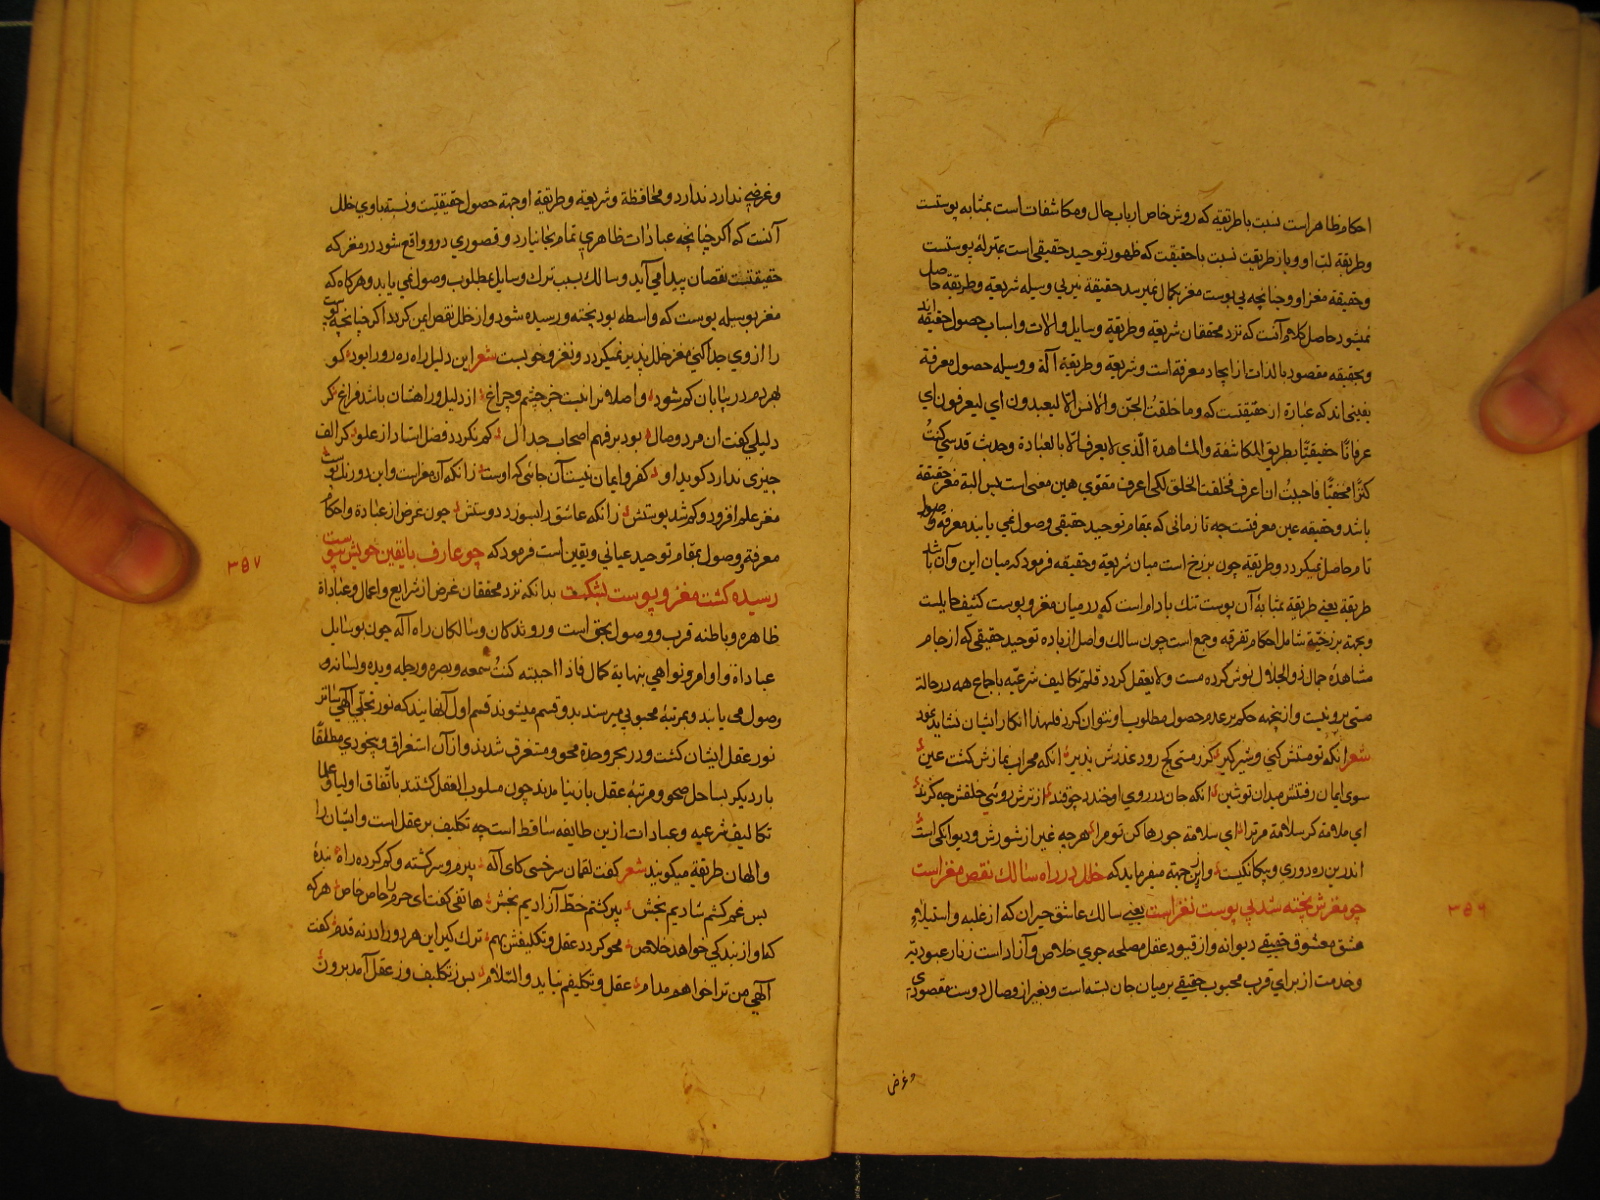 احکام ظاهر است نسبت با طریقه که روش خاص ارباب حال و مکاشفات است بمثابه پوستست
وطریقة لب او و باز طریقت نسبت با حقیقت که ظهور توحید حقیقی است بمنزلهٔ پوستست
وحقیقة مغز او وچنانچه بی پوست مغز بکمال نمیرسد حقیقة نیز بی وسیله شریعة وطریقة حاصل
نمیشود حاصل کلام آنست که نزد محققان شریعة وطریقة وسایل والات واسباب حصول حقیقة اند
وبحقیقه مقصود بالذات از ایجاد معرفة است وشریعة وطریقهٔ آلة ووسیله حصول معرفة
یقینی اند که عبارة از حقیقتست که وما خلقت الجن والانس الا لیعبدون ای لیعرفون ای
عرفانًا حقیقیًّا بطریق المکاشفة والمشاهدة الّذی لا یعرف الا بالعبادة وحدیث قدسی کنتُ
کنزًا مخفیًّا فاحببتُ ان اعرف فخلقت الخلق لکی اعرف مقوی همین معنی است پس البته مغز حقیقة
باشد وحقیقه عین معرفتست چه تا زمانی که بمقام توحید حقیقی وصول نمی یابند معرفة وصول
تام حاصل نمیکردد وطریقة چون برزخ است میان شریعة وحقیقه فرمود که میان این وآن باشد
طریقة یعنی طریقة بمثابهٔ آن پوست تنک بادام است که در میان مغز و پوست کثیف حایلست
وبجهة برزخیّة شامل احکام تفرقه وجمع است چون سالک واصل از باده توحید حقیقی که از جام
مشاهدهٔ جمال ذو الجلال نوش کرده مست ولا یعقل کردد قلم تکالیف شرعیّه باجماع همه در حالة
مستی برو نیست وازینجهة حکم بر عدم حصول مطلوب او نتوان کرد فلهذا انکار ایشان نشاید نمود
شعر انکه تو مستش کنی وشیر کیر کر ز مستی کج رود عذرش پذیر انکه محراب نمازش کشت عین
سوی ایمان رفتنش میدان تو شین انکه جان در روی او خندد چو قند از ترش روئی خلقش چه کزند
ای ملامة کر سلامة مر ترا ای سلامة جو رها کن تو مرا هر چه غیر از شورش ودیوانکی است
اندرین ره دوری وبیکانکیست وازین جهة میفرماید که خلل در راه سالک نقص مغز است
چو مغزش پخته شد بی پوست نغز است یعنی سالک عاشق حیران که از غلبه واستیلاءِ
عشق معشوق حقیقی دیوانه واز قیود عقل مصلحه جوی خلاص وآزاد است زنار عبودیة
وخدمت از برای قرب محبوب حقیقی بر میان جان بسته است وبغیر از وصال دوست مقصودی
وغرض
۳۵۶
وغرضی ندارد ندارد ومحافظة وشریعة وطریقة او جهة حصول حقیقتیت ونسبة باوی خلل
آنست که اکر چنانچه عبادات ظاهری تمام بجا نیارد وقصوری درو واقع شود در مغز که
حقیقتست نقصان پیدا می آید وسالک بسبب ترک وسایل بمطلوب وصول نمی یابد وهرکاه که
مغز بوسیله پوست که واسطه بود پخته ورسیده شود واز خلل نقص ایمن کردد اکر چنانچه پوست
را از وی جدا کنی مغز خلل پذیر نمیکردد ونغز وخوبست شعر این دلیل راه ره رو را بود کو
بهر دم در بیابان کم شود واصلانرا نیست جز چشم وچراغ از دلیل وراهشان باشد فراغ کر
دلیلی کفت ان مرد وصال بود بر فهم اصحاب جدال کم نکردد فضل استاد از علو کر الف
چیزی ندارد کوید او کفر وایمان نیست آن جائی که اوست زانکه آن مغز است واین دو رنک پوست
مغز علم افزود وکم شد پوستش زانکه عاشق را بسوزد دوستش چون غرض از عبادة واحکام
معرفة ووصول بمقام توحید عیانی ویقین است فرمود که چو عارف با یقین خویش پیوست
رسیده کشت مغز و پوست بشکست بدانکه نزد محققان غرض از شرایع واعمال وعبادات
ظاهره وباطنه قرب ووصول بحق است وروندکان وسالکان راه اله چون بوسایل
عبادات واوامر ونواهی بنهایة کمال فاذا احببته کنتُ سمعه وبصره ورجله ویده ولسانه و
وصول می یابند وبمرتبهٔ محبوبی میرسند بدو قسم میشوند قسم اول آنهایند که نور تجلّی الهی ساتر
نور عقل ایشان کشت ودر بحر وحدة محو ومستغرق شدند واز آن استغراق وبیخودی مطلقًا
بار دیکر بساحل صحو ومرتبهٔ عقل باز نیامدند چون مسلوب العقل کشتند باتّفاق اولیا وعلما
تکالیف شرعیه وعبادات ازین طایفه ساقط است چه تکلیف بر عقل است وایشان را
والهان طریقة میکویند شعر کفت لقمان سرخسی کای آله پیرم وسرکشته وکم کرده راه بندهٔ
بس غم کشم شادیم بخش پیر کشتم خطّ آزادیم بخش هاتفی کفت ای حرم را خاص خاص هر که
کاو از بندکی خواهد خلاص محو کردد عقل وتکلیفش بهم ترک کیر این هر دو را در نه قدم کفت
الهی من ترا خواهم مدام عقل وتکلیفم نباید والسّلام پس ز تکلیف وز عقل آمد برون
۳۵۷